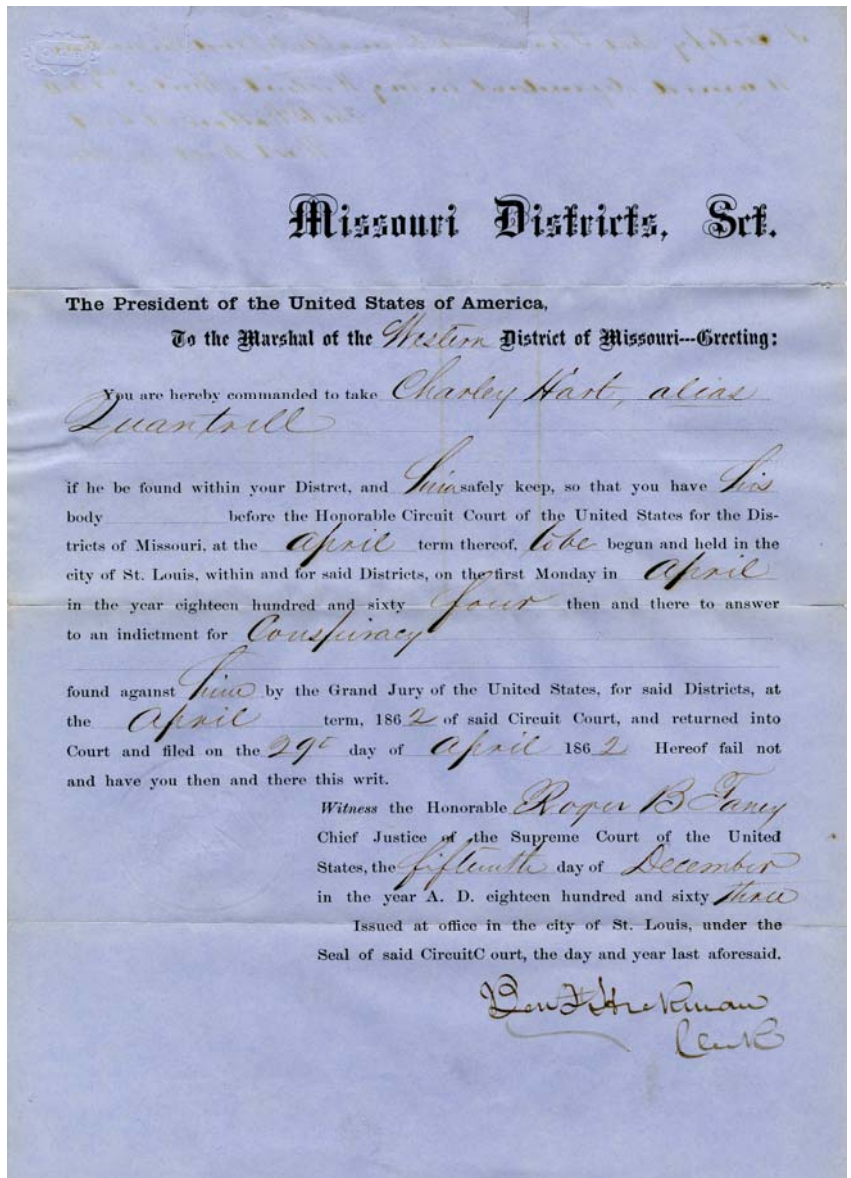 Missouri Districts, Sct.
The President of the United States of America,
To the Marshal of the Western District of Missouri---Greeting:
You are hereby commanded to take Charley Hart, alias
Quantrill
if he be found within your Distret, and him safely keep, so that you have his
body before the Honorable Circuit Court of the United States for the Dis-
tricts of Missouri, at the April term thereof, to be begun and held in the
city of St. Louis, within and for said Districts, on the first Monday in April
in the year eighteen hundred and sixty four then and there to answer
to an indictment for Conspiracy
found against him by the Grand Jury of the United States, for said Districts, at
the April term, 1862 of said Circuit Court, and returned into
Court and filed on the 29th day of April 1862 Hereof fail not
and have you then and there this writ.
Witness the Honorable Roger B Taney
Chief Justice of the Supreme Court of the United
States, the fifteenth day of December
in the year A. D. eighteen hundred and sixty three
Issued at office in the city of St. Louis, under the
Seal of said CircuitC ourt, the day and year last aforesaid.
Ben F Hickman
Clerk